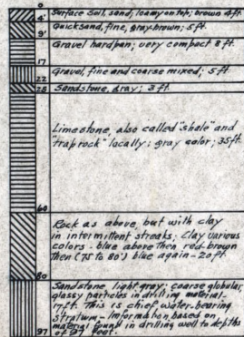 0
Surface soil, sand, loamy on top; brown 4 ft.
4'
Quicksand, fine, gray-brown; 5 ft.
9'
Gravel hardpan; very compact 8 ft.
17
Gravel, fine and coarse mixed; 5 ft.
22
Sandstone, gray; 3 ft.
25
Limestone, also called "shale" and
"traprock" locally; gray color; 35 ft.
60
Rock as above, but with clay
in intermittent streaks; Clay various
colors - blue above then red-brown
then (75 to 80') blue again - 20 ft.
80
Sandstone light gray; coarse globular,
glassy particles in drilling material -
17 ft. This is chief water-bearing
stratum - Information based on
material found in drilling well to depths
of 97 feet.
97